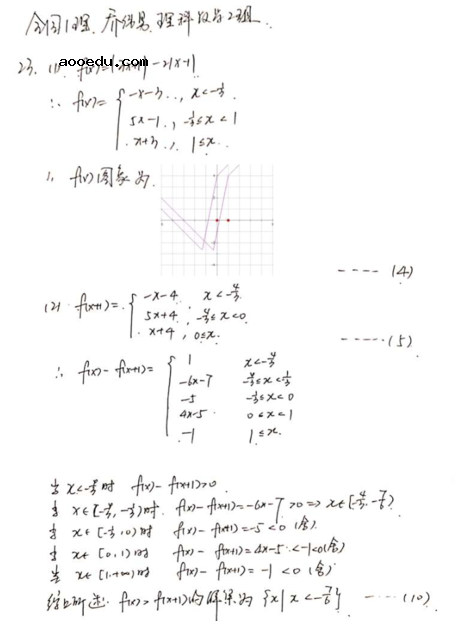 全国1理.乔锦昜.理科数学2组.
aooedu.com
23. (1) f(x)=|3x+1|-2|x-1|
∴ f(x)= { -x-3 , x<-1/3.
5x-1 , -1/3≤x<1
x+3 , 1≤x.
f(x)图象为.
---- (4)
(2) f(x+1)= { -x-4 , x<-4/3
5x+4 , -4/3≤x<0
x+4 , 0≤x.
----- (5)
∴ f(x)-f(x+1)= { 1 x<-4/3
-6x-7 -4/3≤x<-1/3
-5 -1/3≤x<0
4x-5 0≤x<1
-1 1≤x.
当 x<-4/3时 f(x)-f(x+1)>0.
当 x∈[-4/3,-1/3)时. f(x)-f(x+1)=-6x-7>0 => x∈[-4/3,-7/6)
当 x∈[-1/3,0)时 f(x)-f(x+1)=-5<0 (舍)
当 x∈[0,1)时 f(x)-f(x+1)=4x-5<-1<0(舍)
当 x∈[1,+∞)时 f(x)-f(x+1)=-1<0 (舍)
综上所述. f(x)>f(x+1)的解集为 {x|x<-7/6} ---- (10)